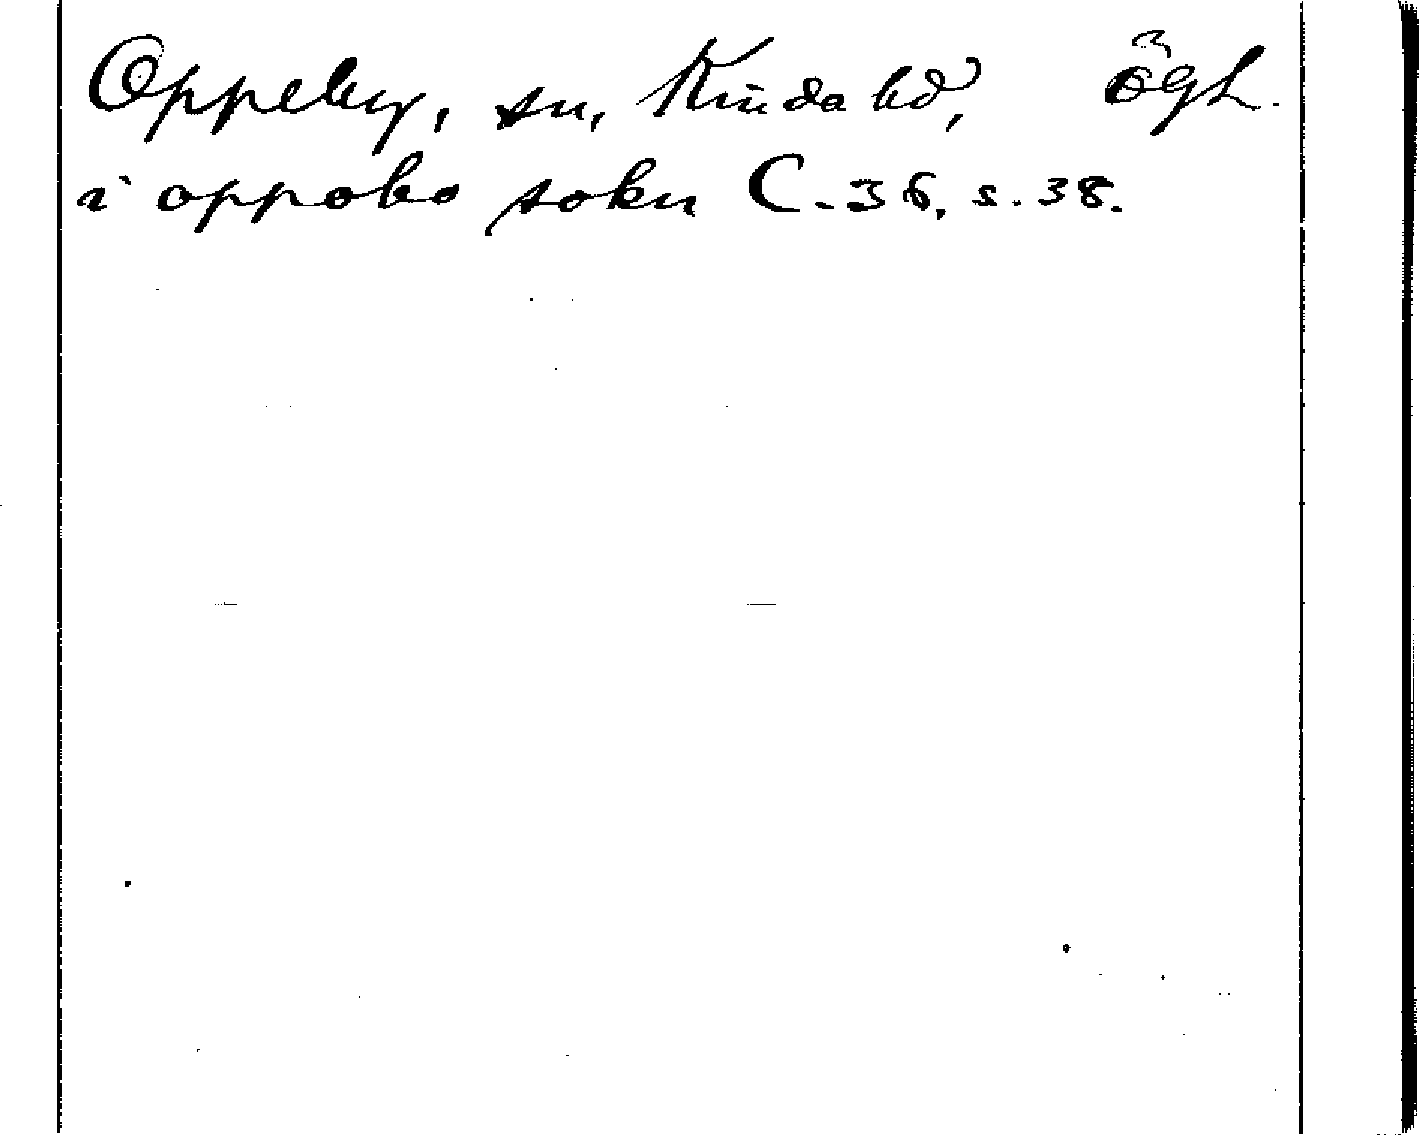 Oppeby, sn, Kinda hd, Ögl.
i oppobo sokn C-36, s. 38.